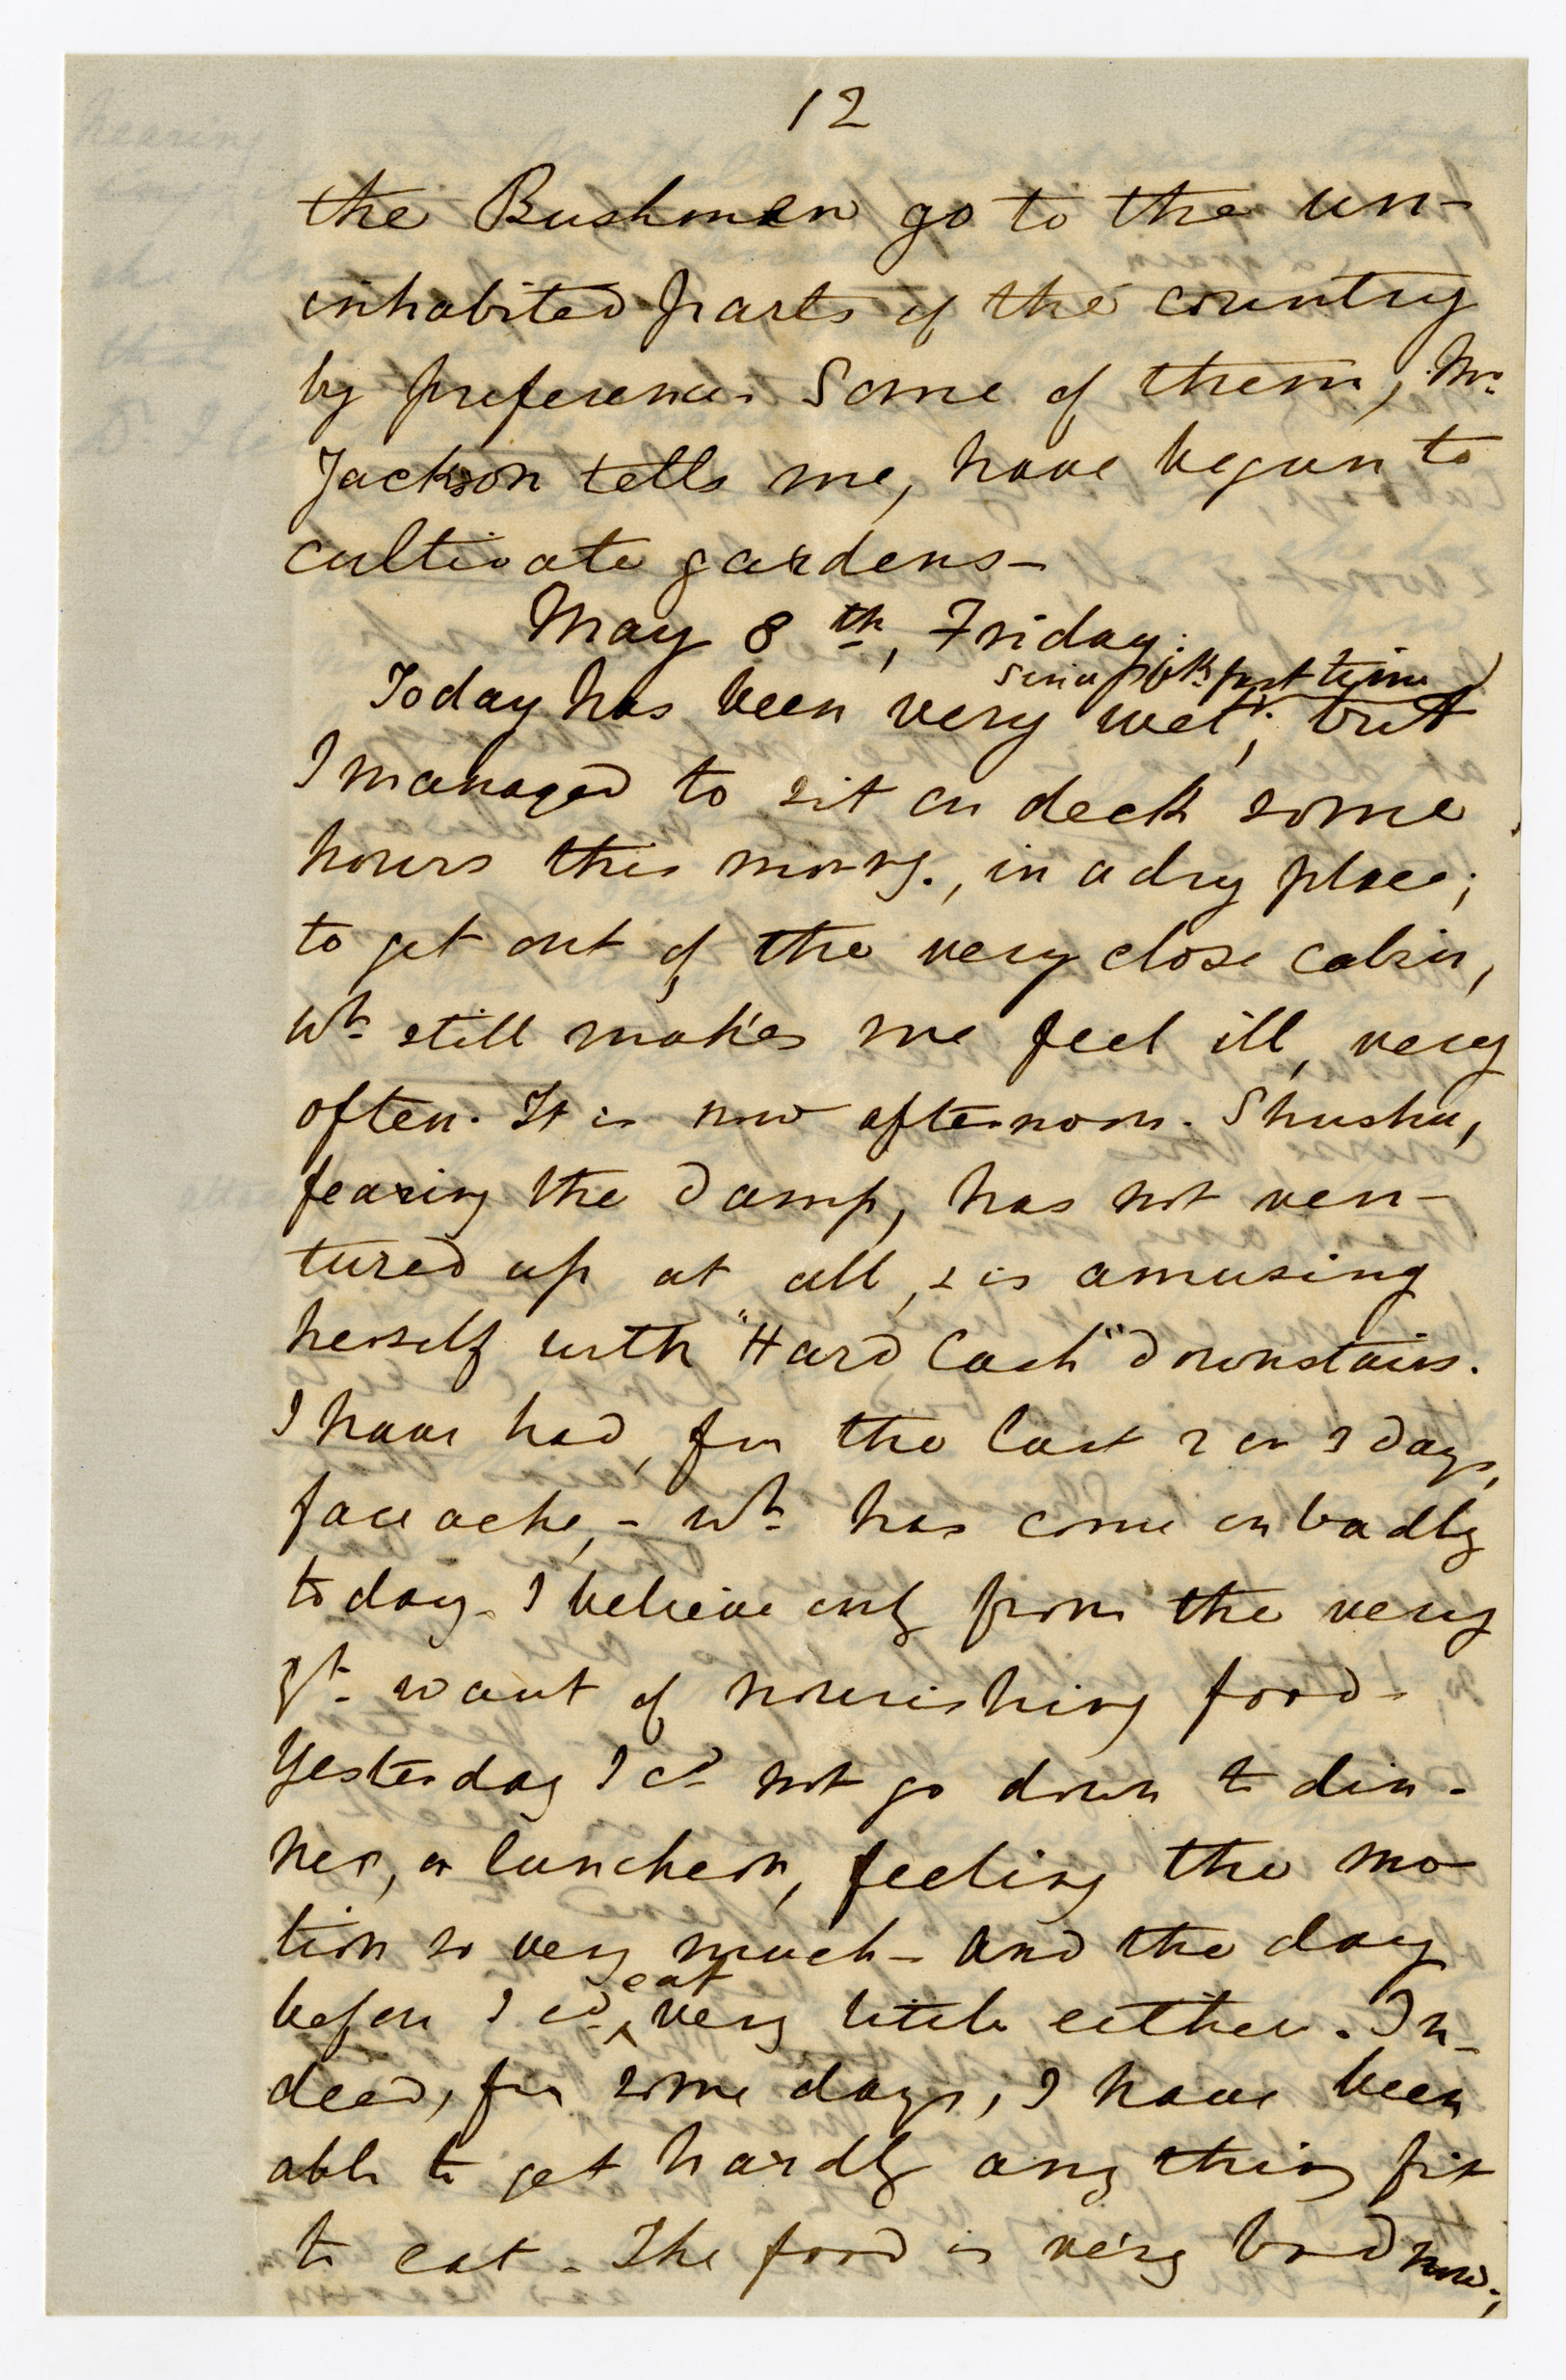 12
the Bushmen go to the un-
inhabited parts of the country
by preference. Some of them, Mr.
Jackson tells me, have begun to
cultivate gardens-
May 8th, Friday.
since bkfst time
Today has been very wet; but
I managed to sit on deck some
hours this morng., in a dry place;
to get out of the very close cabin,
wh. still makes me feel ill, very
often. It is now afternoon. Shushu,
fearing the damp, has not ven-
tured up at all, & is amusing
herself with "Hard Cash" downstairs.
I have had, for the last 2 or 3 days,
face ache, - wh. has come on badly
today. I believe only from the very
gt. want of nourishing food-
Yesterday I cd. not go down to din-
ner, or luncheon, feeling the mo-
tion so very much- and the day
before I cd. eat very little either. In-
deed, for some days, I have been
able to get hardly any thing fit
to eat. The food is very bad now;